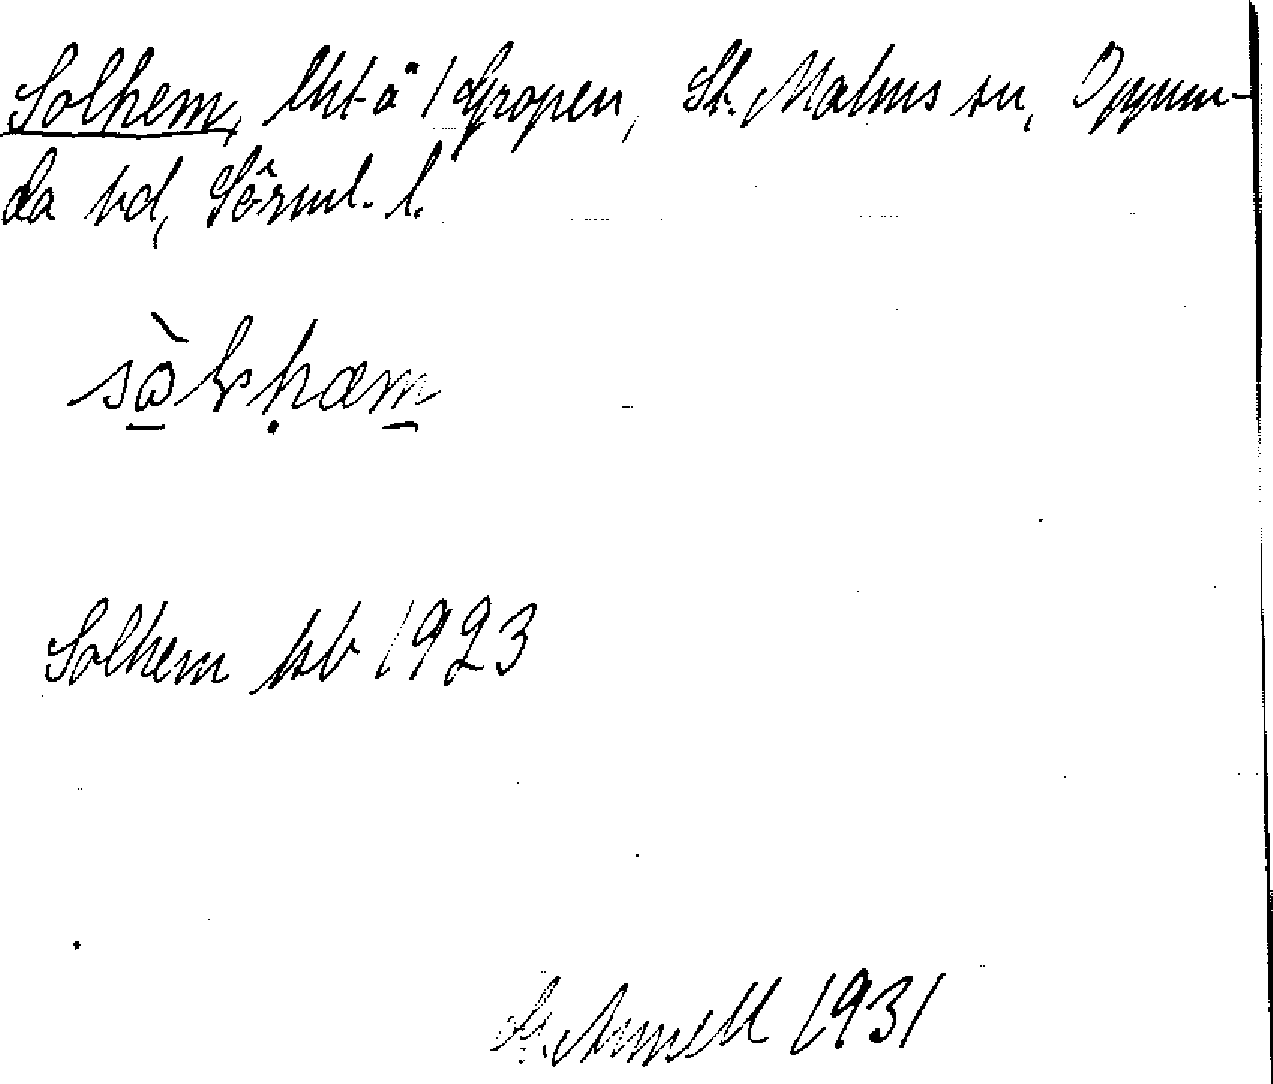 Solhem, lht å 1 Gropen, St. Malms sn, Oppun-
da hd, Sörml. l.
sòlhæm
Solhem kb 1923
G. Arnell 1931